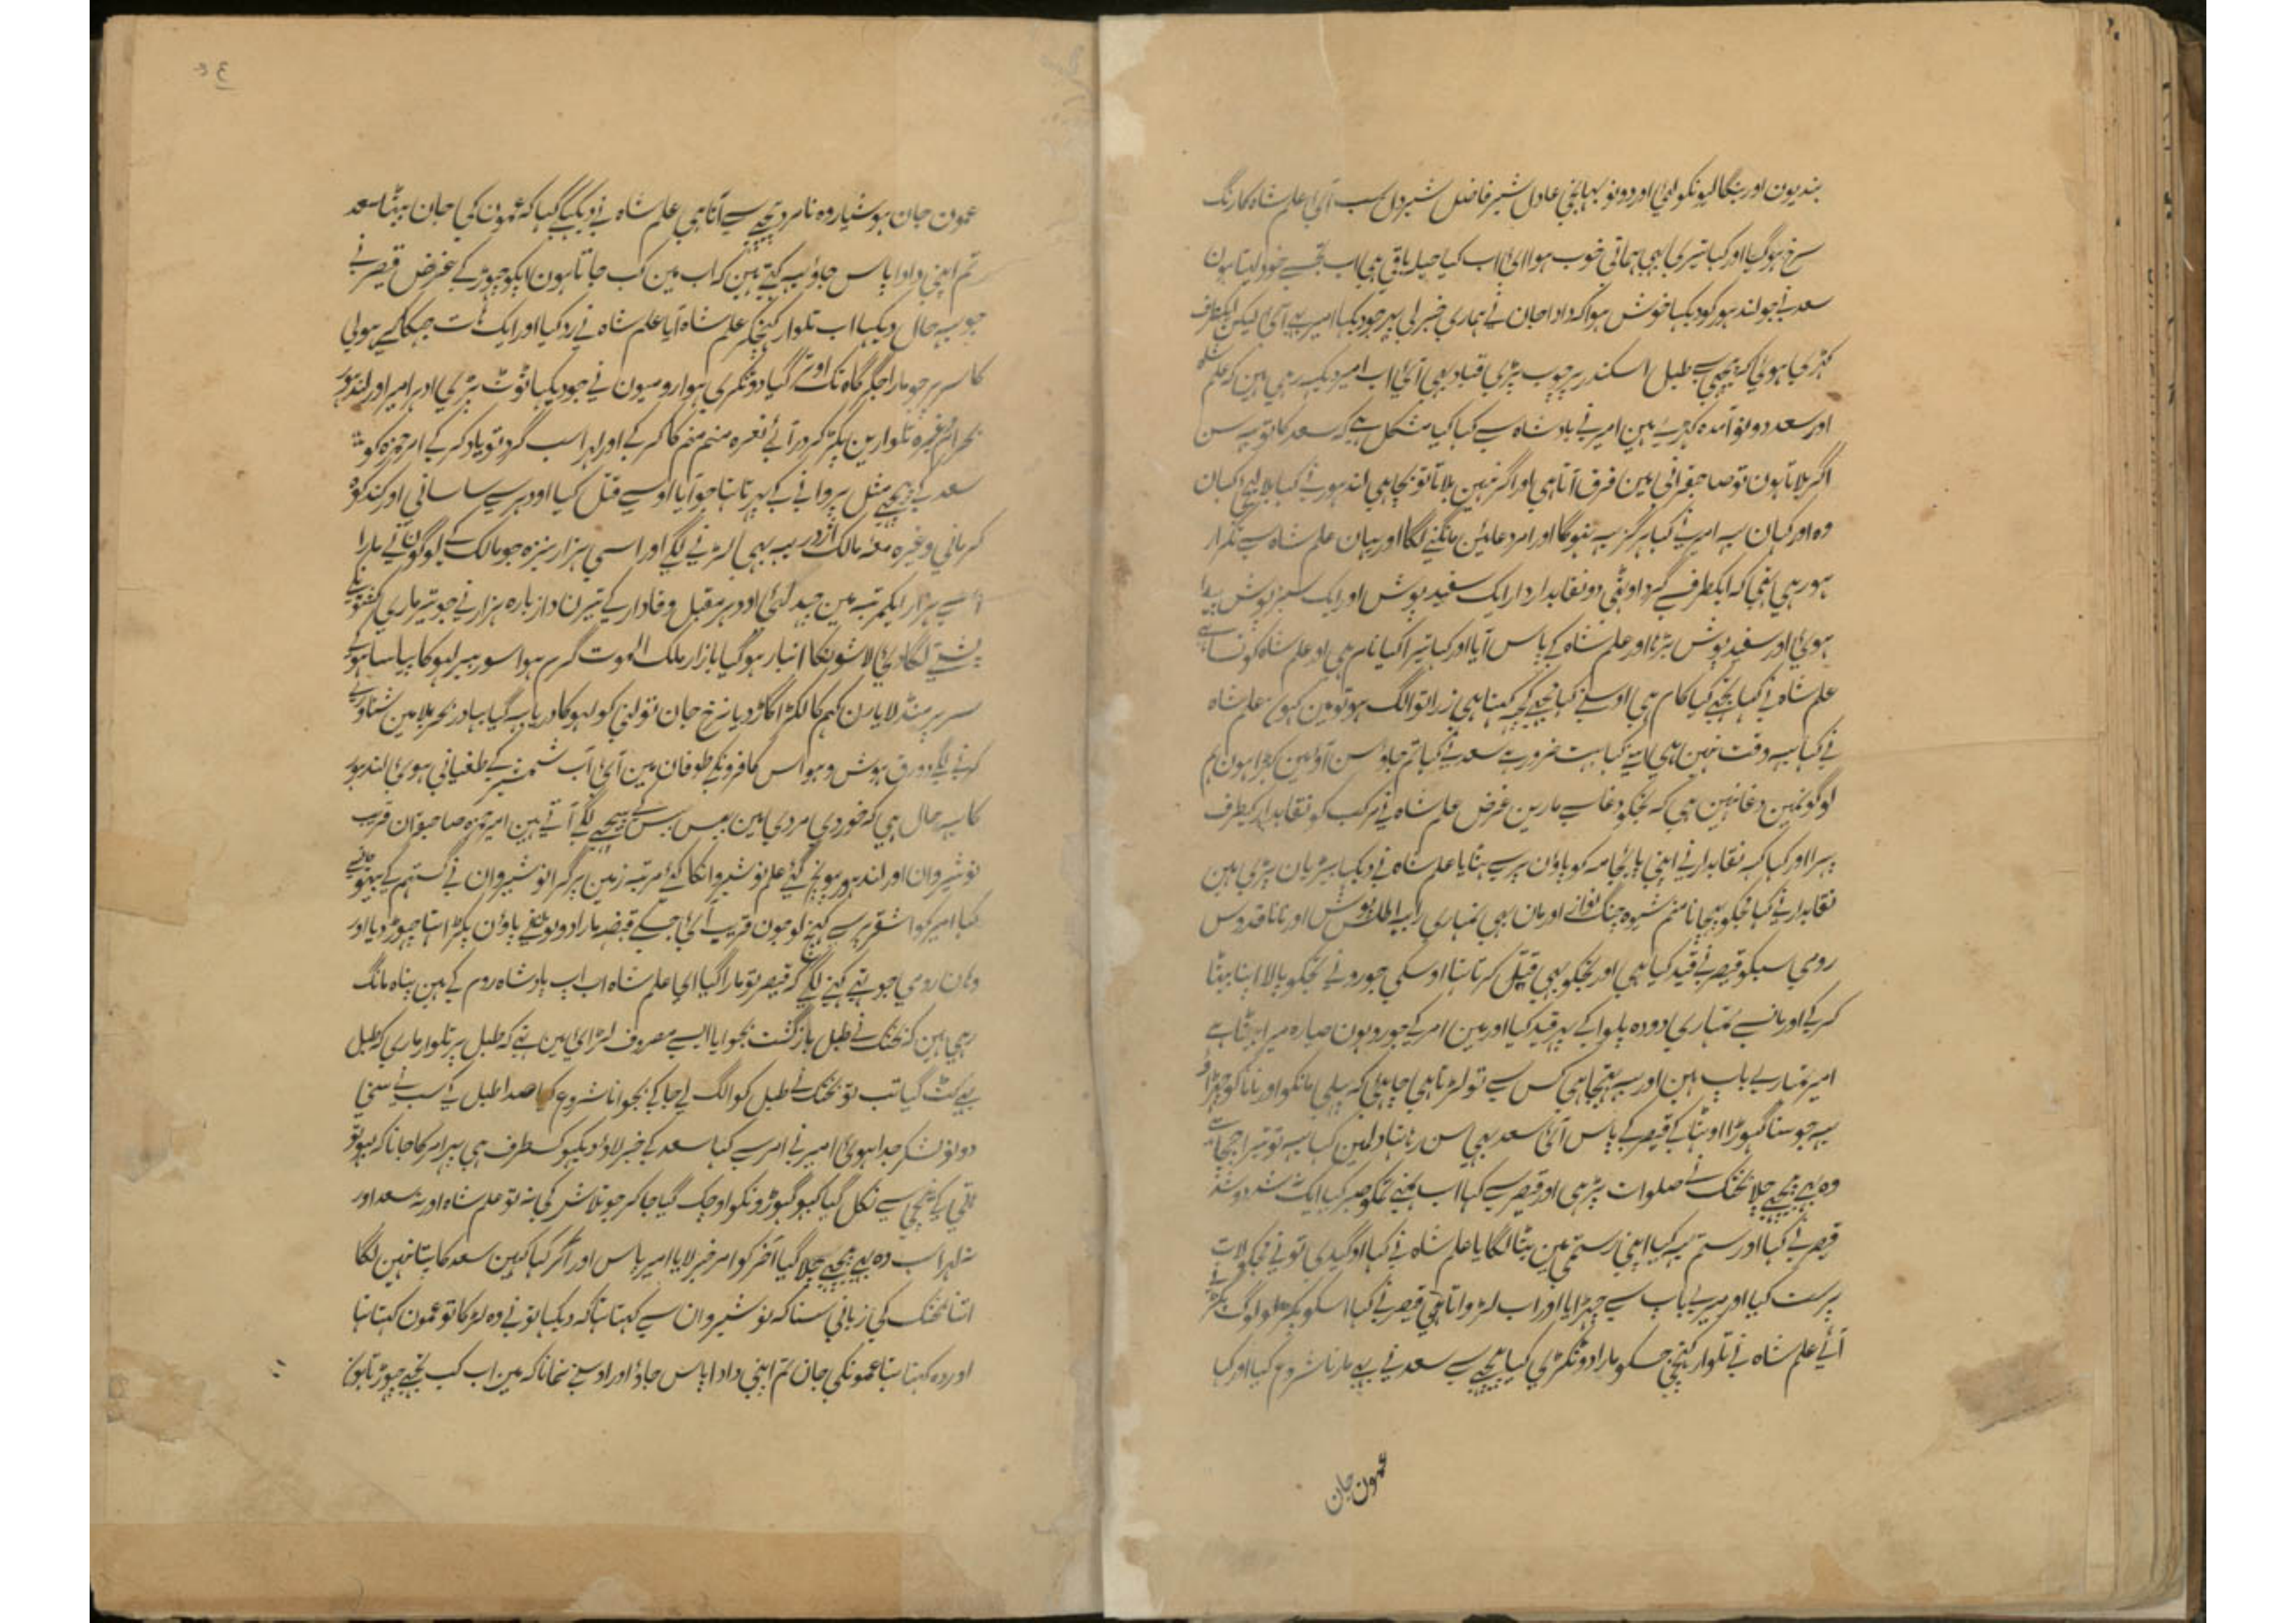 بندیون اور بنگالیونکو لیئ اور دونو بہانجی عادل شیر فاضل شیر دل سب آئ اعلم شاہ کا رنگ
سرخ ہو گیا اور کہا تیری یہی ہماتی خوب ہوا ای اب کیا حیلہ باقی ہی اب تجسے خود لیتا ہون
سعد نے جو لندہور کو دیکہا خوش ہوا کہ دادا جان نے ہماری خبر لی پہر جو دیکہا امیر بہی آئ لیکن ایکطرف
کہڑی ہوئ کہ پیچہی سے طبل اسکندر پر چوب پڑی قباد بہی آئ اب امیر دیکہہ رہی ہین کہ علم شاہ
اور سعد دونو آمدہ کہڑے ہین امیر نے بادشاہ سے کہا کیا مشکل ہے کہ سعد کا تو یہ سن
اگر بلاتا ہون تو صاحبقرانی مین فرق آتا ہی اور اگر نہین بلاتا تو بچا ہی لندہور نے کہا بلا لیجی کہان
وہ اور کہان یہ امیر نے کہا ہرگز یہ نہوگا اور امر دعائین مانگنے لگا اور یہان علم شاہ سے تکرار
ہو رہی تہی کہ ایکطرف سے گرد اوٹہی دو نقابدار ایک سفید پوش اور ایک سبز پوش پیدا
ہوئ اور سفید پوش بڑہا اور علم شاہ کے پاس آیا اور کہا تیرا کیا نام ہی او علم شاہ کونسا ہے
علم شاہ نے کہا تجہے کیا کام ہی اوسنے کہا مجہے کچہہ کہنا ہی زرا تو الگ ہو تو مین کہون علم شاہ
نے کہا یہہ وقت نہین ہی اوسنے کہا بہت ضرور ہے سعد نے کہا تم جاؤ سن آؤ مین کہڑا ہون ہم
لوگونمین دغا نہین ہی کہ تجکو دغا سے مارین غرض علم شاہ نے مرکب کو نقابدار کیطرف
پہرا اور کہا کہہ نقابدار نے اپنی پائجامہ کو پاؤن پر سے ہٹایا علم شاہ نے دیکہا بیڑیان پڑی ہین
نقابدار نے کہا مجکو پہچانا منم شیوہ جنگ نواز اور مان بہی تمہاری رابعہ اطلس پوش اور نانا قدوس
رومی سبکو قیصر نے قید کیا ہی اور تجکو بہی قتل کرتا تہا اوسکی جورو نے تجکو پالا اپنا بیٹا
کرکے اور مانسے تمہاری دودہ پلوا کے پہر قید کیا اور مین امیر کے جورو ہون صیارہ میرا بیٹا ہے
امیر تمہارے باپ ہین اور یہہ بہتیجا ہی کس سے تو لڑتا ہی چاہیئ کہ پہلی مانکو اور نانا کو چہڑاؤ
یہہ جو سنا گہوڑا اوٹہا کے قیصر کے پاس آئ سعد بہی سن رہا تہا دلمین کہا یہہ تو میرا چچا ہے
وہ بہی پیچہے چلا بختک نے صلوات پڑہی اور قیصر سے کہا اب کہنے تمکو خبر کیا ایک شد دو شد
قیصر نے کہا اور رستم یہہ کیا اپنی رستمی مین بٹا لگایا علم شاہ نے کہا او گیدی تو نے مجکو لات
پرست کیا اور میرے باپ سے چہڑایا اور اب لڑواتا ہی قیصر نے کہا اسکو پکڑ لو لوگ پکڑنے
آئے علم شاہ نے تلوار کہینچی جسکو مارا دو ٹکڑی کیا پیچہے سے سعد نے بہی مارنا شروع کیا اور کہا
عمون جان
عمون جان ہوشیار وہ نامرد پیچہے سے آتا ہی علم شاہ نے دیکہہ کے کہا کہ عمون کی جان بیٹا سعد
تم اپنی دادا پاس جاؤ یہہ کہتے ہین کہ اب مین کب جاتا ہون اپکو چہوڑ کے غرض قیصر نے
جو یہہ حال دیکہا اب تلوار کہینچکر علم شاہ آیا علم شاہ نے رد کیا اور ایک ہات جہکا کے ہولی
کا سر پر جو مارا جگر گاہ تک اوتر گیا دو ٹکڑی ہوا رومیون نے جو دیکہا ٹوٹ پڑی ادہر امیر اور لندہور
بہرام وغیرہ تلوارین پکڑ کر در آئے نعرہ منم منم کا کر کے اور لہراسب گرد تو یاد کر کے امر حمزہ کو
سعد کے پیچہے مثل پروانے کے پہرتا تہا جو آیا اوسے قتل کیا اودہر سے ساسانی اور کندکوہ
کرمانی وغیرہ معہ مالک اژدر یہہ بہی لڑنے لگے اور اسی ہزار نیزہ جو مالک کے لوگون نے مارا
اسے ہزار ایکمرتبہ مین چہد گئی اودہر مقبل وفادار کے تیرانداز بارہ ہزار نے جو تیر ماری کشتونکے
پشتے لگا دئ لاشونکا انبار ہو گیا بازار ملک الموت گرم ہوا سورمہر لہو کا پیاسا ہوکے
سر پر منڈلایا رن کہم کا لکڑا گاڑ دیا نرخ جان تو لنی کو لہو کا دریا بہہ گیا بہادر بحر بلا مین شناوری
کرنے لگے ورق ہوش و ہواس کافرونکے طوفان مین آئ آب شمشیر کے طغیانی ہوئ لندہور
کا یہہ حال ہی کہ خوردی مردی مین بیس بیس کے پیچہے لگے آتے ہین امیر حمزہ صاحبقران قریب
نوشیروان اور لندہور پہونچ گئے علم نوشیروانکا کئے مرتبہ زمین پر گرا نوشیروان نے گستہم کے بیٹونسے
کہا امیر کو اشقر پر سے کہینچ لو جون قریب آئ جسکے قبضہ مارا دونونے پاؤن پکڑا تہا چہوڑ دیا اور
وہان رومی جو تہے کہنے لگے کہ قیصر تو مارا گیا ای علم شاہ اب اپ بادشاہ روم کے ہین پناہ مانگ
رہی ہین کہ بختک نے طبل بازگشت بجوایا ایسے مصروف لڑائ مین تہے کہ طبل پر تلوار ماری کہ طبل
بہی کٹ گیا تب تو بختک نے طبل کو الگ لیجا کے بجوانا شروع کیا صدا طبل کے سب نے سنی
دونو لشکر جدا ہوئ امیر نے امر سے کہا سعد کے خبر لاؤ دیکہو کسطرف ہی پہر امر کا جانا کہ ہو تو
ہاتی کے نیچی سے نکل گیا کبہو گہوڑونکو اوچک گیا جا کر جو تلاش کی نہ تو علم شاہ اور نہ سعد اور
نہ لہراسب وہ بہی پیچہے چلا گیا آخر کو امر خبر لایا امیر پاس اور آکر کہا کہین سعد کا پتا نہین لگا
اتنا بختک کی زبانی سنا کہ نوشیروان سے کہتا تہا کہ دیکہا تو نے وہ لڑکا تو عمون کہتا تہا
اور وہ کہتا تہا عمونکی جان تم اپنی دادا پاس جاؤ اور اوسنے نمانا کہ مین اب کب تجہے چہوڑتا ہون